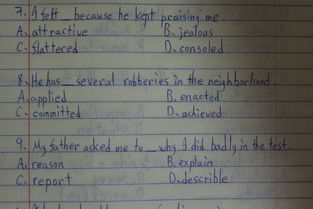 7. I felt _ because he kept praising me.
A. attractive B. jealous
C. flattered D. consoled
8. He has _ several robberies in the neighborhood.
A. applied B. enacted
C. committed D. achieved
9. My father asked me to _ why I did badly in the test.
A. reason B. explain
C. report D. describle